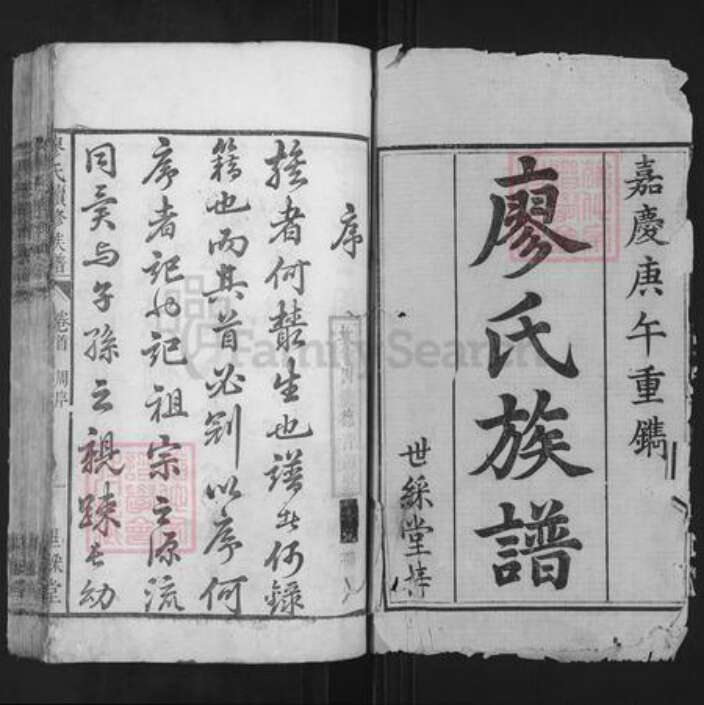 嘉慶庚午重鐫
廖氏族譜
世綵堂梓
序
者何基生也譜者何錄
籍也而其首必列以序何
序者記也記祖宗之源流
同異与子孫之親疎長幼
氏續修族譜
卷首
周序
綵堂
FamilySearch